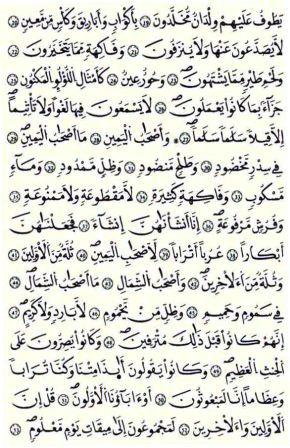 يَطُوفُ عَلَيْهِمْ وِلْدَانٌ مُّخَلَّدُونَ ١٧ بِأَكْوَابٍ وَأَبَارِيقَ وَكَأْسٍ مِّن مَّعِينٍ ١٨
لَّا يُصَدَّعُونَ عَنْهَا وَلَا يُنزِفُونَ ١٩ وَفَاكِهَةٍ مِّمَّا يَتَخَيَّرُونَ ٢٠
وَلَحْمِ طَيْرٍ مِّمَّا يَشْتَهُونَ ٢١ وَحُورٌ عِينٌ ٢٢ كَأَمْثَالِ اللُّؤْلُؤِ الْمَكْنُونِ ٢٣
جَزَاءً بِمَا كَانُوا يَعْمَلُونَ ٢٤ لَا يَسْمَعُونَ فِيهَا لَغْوًا وَلَا تَأْثِيمًا ٢٥
إِلَّا قِيلًا سَلَامًا سَلَامًا ٢٦ وَأَصْحَابُ الْيَمِينِ مَا أَصْحَابُ الْيَمِينِ ٢٧
فِي سِدْرٍ مَّخْضُودٍ ٢٨ وَطَلْحٍ مَّنضُودٍ ٢٩ وَظِلٍّ مَّمْدُودٍ ٣٠ وَمَاءٍ
مَّسْكُوبٍ ٣١ وَفَاكِهَةٍ كَثِيرَةٍ ٣٢ لَّا مَقْطُوعَةٍ وَلَا مَمْنُوعَةٍ ٣٣
وَفُرُشٍ مَّرْفُوعَةٍ ٣٤ إِنَّا أَنشَأْنَاهُنَّ إِنشَاءً ٣٥ فَجَعَلْنَاهُنَّ
أَبْكَارًا ٣٦ عُرُبًا أَتْرَابًا ٣٧ لِّأَصْحَابِ الْيَمِينِ ٣٨ ثُلَّةٌ مِّنَ الْأَوَّلِينَ ٣٩
وَثُلَّةٌ مِّنَ الْآخِرِينَ ٤٠ وَأَصْحَابُ الشِّمَالِ مَا أَصْحَابُ الشِّمَالِ ٤١
فِي سَمُومٍ وَحَمِيمٍ ٤٢ وَظِلٍّ مِّن يَحْمُومٍ ٤٣ لَّا بَارِدٍ وَلَا كَرِيمٍ ٤٤
إِنَّهُمْ كَانُوا قَبْلَ ذَٰلِكَ مُتْرَفِينَ ٤٥ وَكَانُوا يُصِرُّونَ عَلَى
الْحِنثِ الْعَظِيمِ ٤٦ وَكَانُوا يَقُولُونَ أَئِذَا مِتْنَا وَكُنَّا تُرَابًا
وَعِظَامًا أَإِنَّا لَمَبْعُوثُونَ ٤٧ أَوَآبَاؤُنَا الْأَوَّلُونَ ٤٨ قُلْ إِنَّ
الْأَوَّلِينَ وَالْآخِرِينَ ٤٩ لَمَجْمُوعُونَ إِلَىٰ مِيقَاتِ يَوْمٍ مَّعْلُومٍ ٥٠